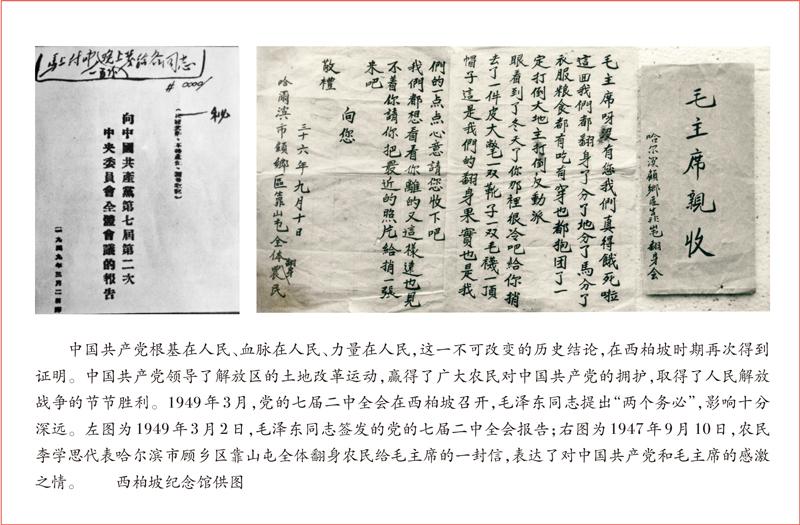 各同志
向中國共產黨第七屆第二次
中央委員會全體會議的報告
一九四九年三月二日
毛主席親收
哈尔濱顧鄉區靠山屯翻身会
毛主席呀有您我們真得餓死啦
這回我們都翻身了分了地分了馬分了
衣服粮食都有吃有穿也都抱团了一
定打倒大地主打倒反动派
眼看到了冬天了你那裡很冷吧給你捎
去了一件皮大氅一双靴子一双毛襪一頂
帽子這是我們的翻身果實也是我
們的一点点心意請您收下吧
我們都想看看你離的又這樣遠也見
不着你請你把最近的照片給捎一張
来吧
向您
敬禮
三十六年九月十日
哈爾濱市顧鄉區靠山屯全体翻身農民
中国共产党根基在人民、血脉在人民、力量在人民,这一不可改变的历史结论,在西柏坡时期再次得到
证明。中国共产党领导了解放区的土地改革运动,赢得了广大农民对中国共产党的拥护,取得了人民解放
战争的节节胜利。1949年3月,党的七届二中全会在西柏坡召开,毛泽东同志提出“两个务必”,影响十分
深远。左图为1949年3月2日,毛泽东同志签发的党的七届二中全会报告;右图为1947年9月10日,农民
李学思代表哈尔滨市顾乡区靠山屯全体翻身农民给毛主席的一封信,表达了对中国共产党和毛主席的感激
之情。 西柏坡纪念馆供图